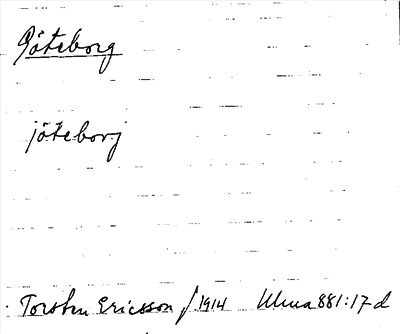 Göteborg
jöteborj
Torsten Ericsson / 1914 Ulma 881:17 d